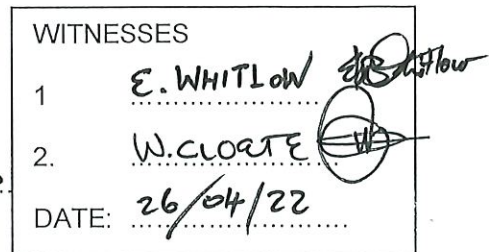 WITNESSES
1 E. WHITLOW
2. W. CLOETE
DATE: 26/04/22